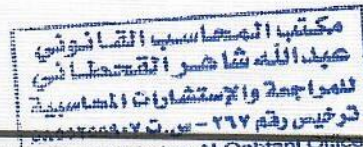 مكتب المحاسب القانوني
عبدالله شاهر القحطاني
للمراجعة والإستشارات المحاسبية
ترخيص رقم ٢٦٧ - س.ت
Office